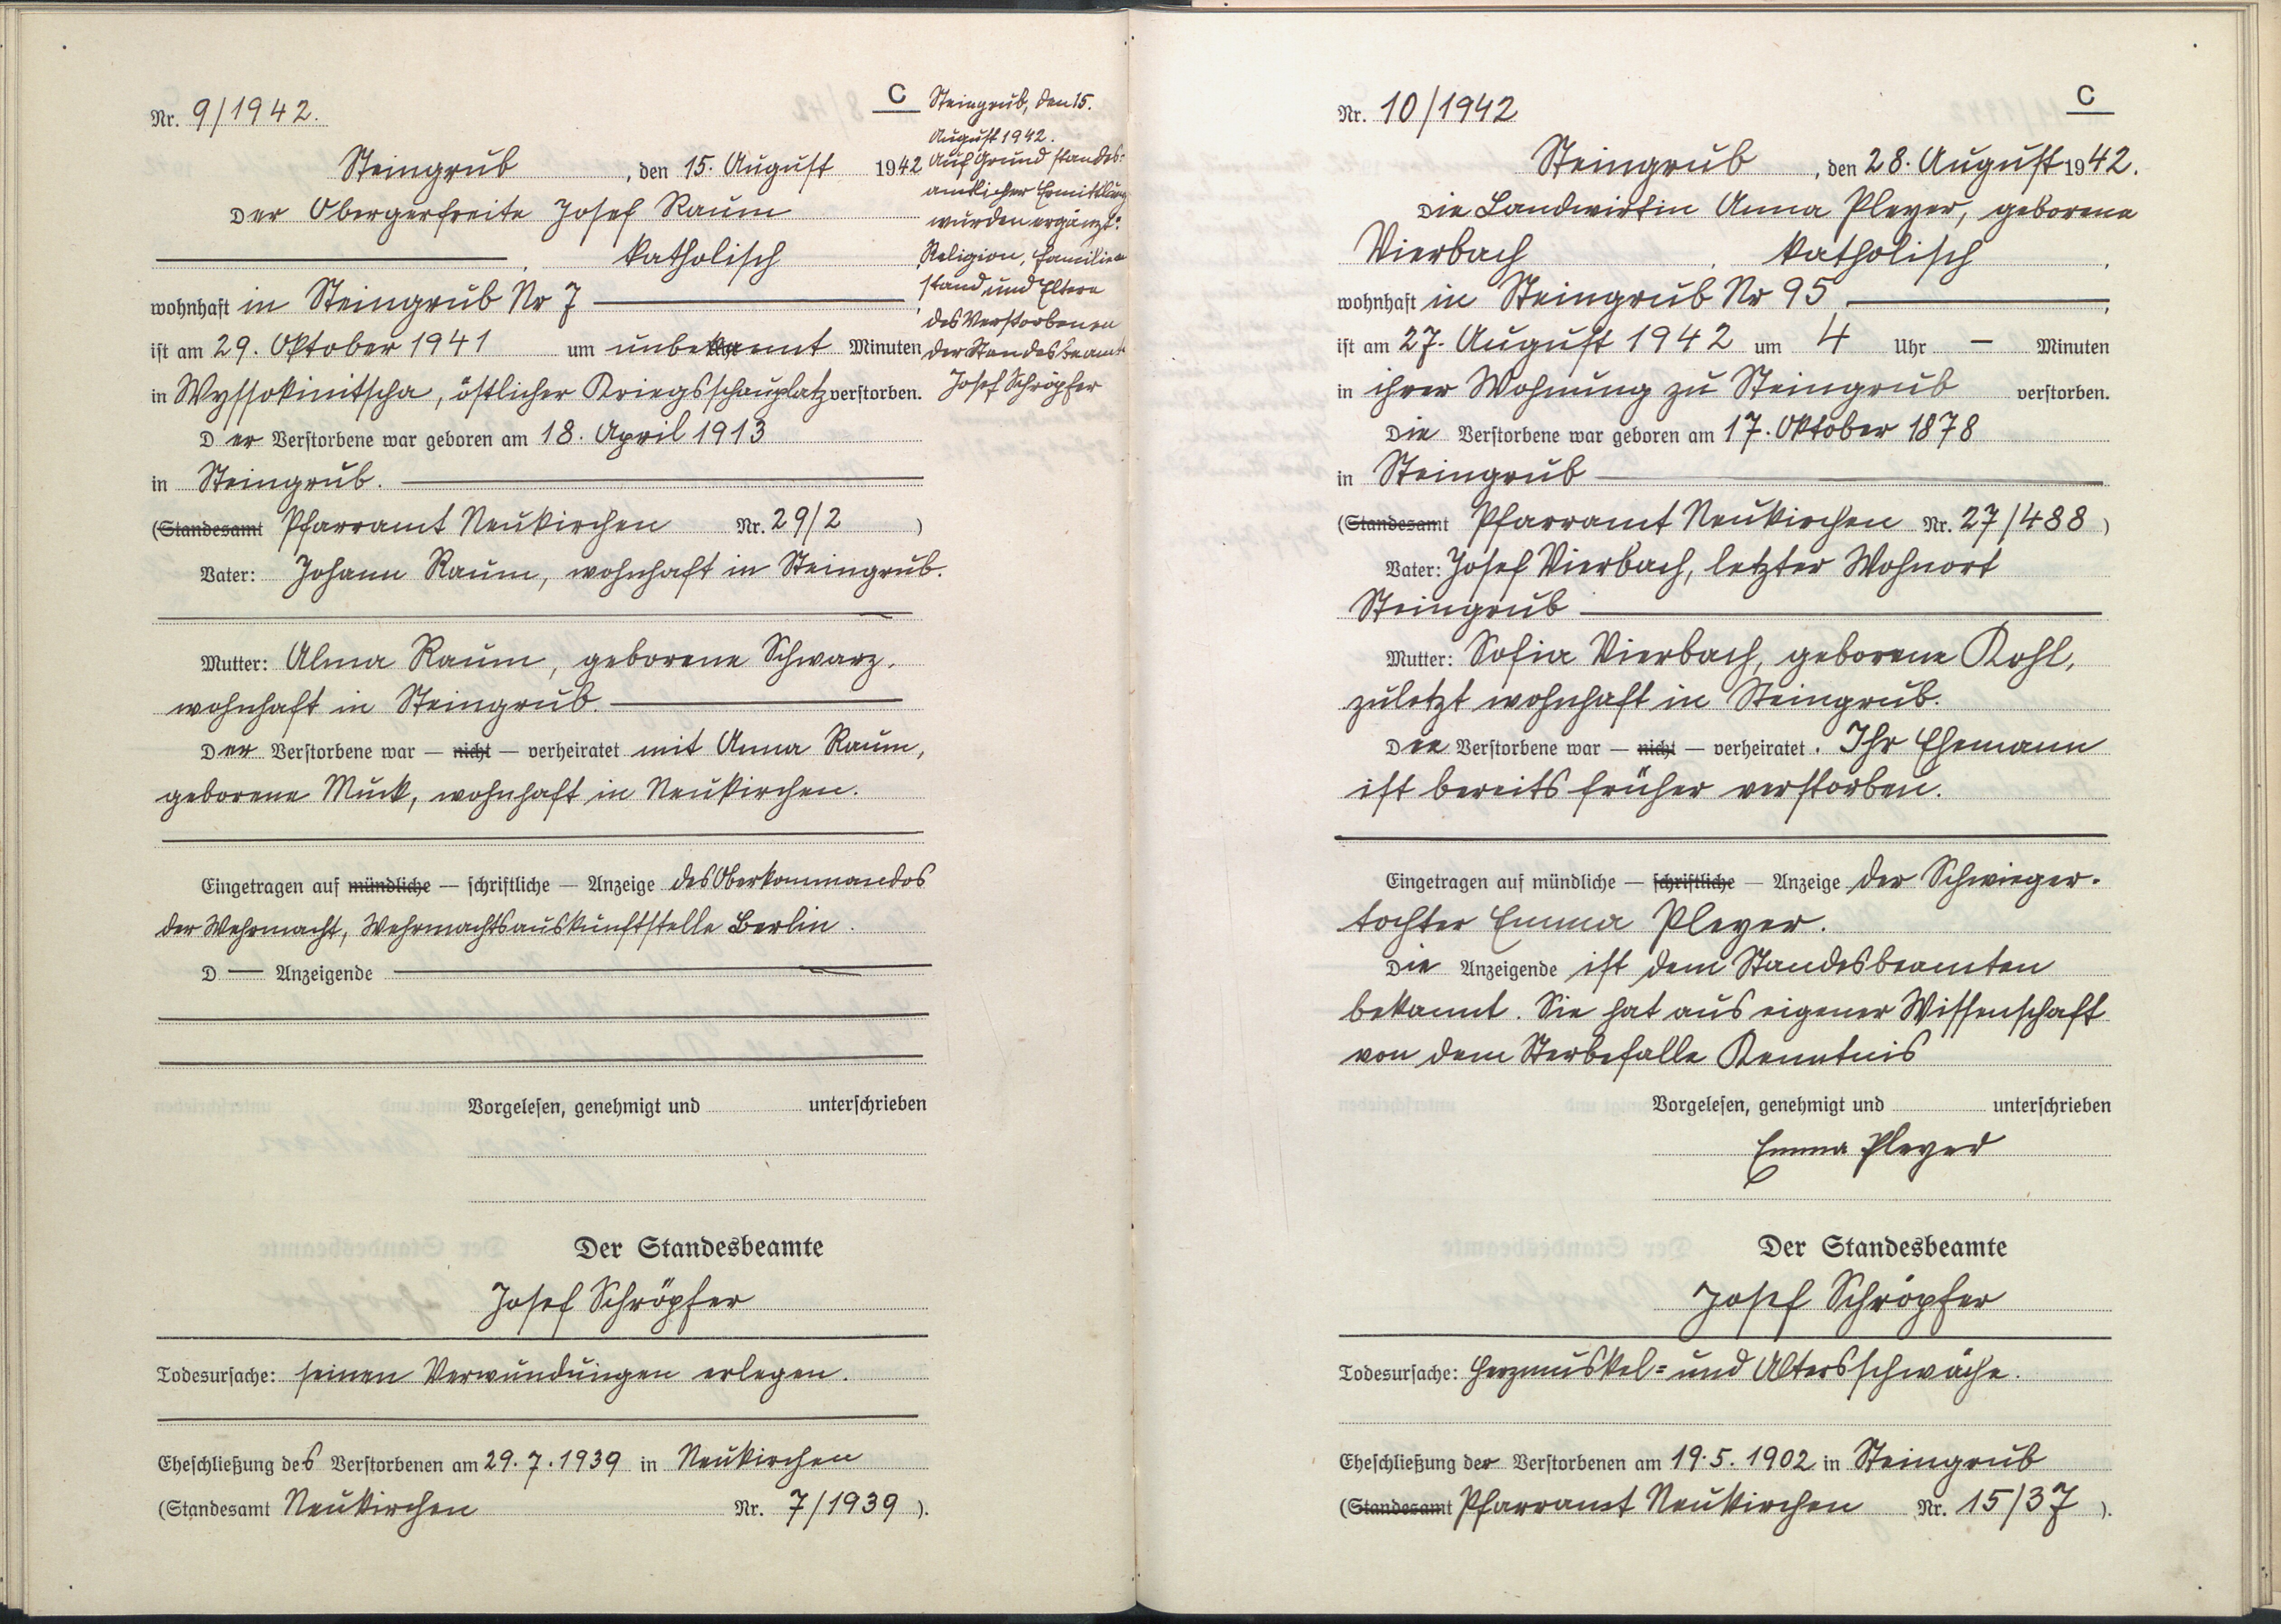 Nr. 9/1942.
C
Steingrub, den 15. August 1942
Der Obergefreite Josef Raum
katholisch
wohnhaft in Steingrub Nr 7
ist am 29. Oktober 1941 um unbekannt Minuten
in Wyssokinitscha, östlicher Kriegsschauplatz verstorben.
Der Verstorbene war geboren am 18. April 1913
in Steingrub.
(Standesamt Pfarramt Neukirchen Nr. 29/2 )
Vater: Johann Raum, wohnhaft in Steingrub.
Mutter: Alma Raum, geborene Schwarz,
wohnhaft in Steingrub.
Der Verstorbene war — nicht — verheiratet mit Anna Raum,
geborene Muck, wohnhaft in Neukirchen.
Eingetragen auf mündliche — schriftliche — Anzeige des Oberkommandos
der Wehrmacht, Wehrmachtsauskunftstelle Berlin.
D — Anzeigende
Vorgelesen, genehmigt und unterschrieben
Der Standesbeamte
Josef Schröpfer
Todesursache: seinen Verwundungen erlegen.
Eheschließung des Verstorbenen am 29.7.1939 in Neukirchen
(Standesamt Neukirchen Nr. 7/1939 ).
Steingrub, den 15.
August 1942.
Auf Grund standes=
amtlicher Ermittlung
wurden ergänzt:
Religion, Familien
stand und Eltern
des Verstorbenen
der Standesbeamte
Josef Schröpfer
Nr. 10/1942
C
Steingrub, den 28. August 1942.
Die Landwirtin Anna Pleyer, geborene
Vierbach, katholisch,
wohnhaft in Steingrub Nr 95
ist am 27. August 1942 um 4 Uhr — Minuten
in ihrer Wohnung zu Steingrub verstorben.
Die Verstorbene war geboren am 17. Oktober 1878
in Steingrub
(Standesamt Pfarramt Neukirchen Nr. 27/488 )
Vater: Josef Vierbach, letzter Wohnort
Steingrub
Mutter: Sofia Vierbach, geborene Kohl,
zuletzt wohnhaft in Steingrub.
Die Verstorbene war — nicht — verheiratet. Ihr Ehemann
ist bereits früher verstorben.
Eingetragen auf mündliche — schriftliche — Anzeige der Schwieger-
tochter Emma Pleyer.
Die Anzeigende ist dem Standesbeamten
bekannt. Sie hat aus eigener Wissenschaft
von dem Sterbefalle Kenntnis
Vorgelesen, genehmigt und unterschrieben
Emma Pleyer
Der Standesbeamte
Josef Schröpfer
Todesursache: Herzmuskel= und Altersschwäche.
Eheschließung der Verstorbenen am 19.5.1902 in Steingrub
(Standesamt Pfarramt Neukirchen Nr. 15/37 ).